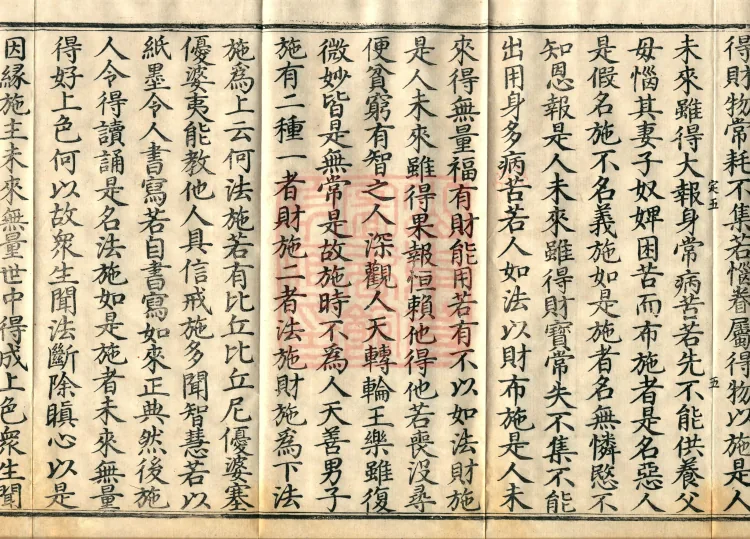 得財物常耗不集若惱眷屬得物以施是人
未來雖得大報身常病苦若先不能供養父
母惱其妻子奴婢困苦而布施者是名惡人
是假名施不名義施如是施者名無憐愍不
知恩報是人未來雖得財寶常失不集不能
出用身多病苦若人如法以財布施是人未
來得無量福有財能用若有不以如法財施
是人未來雖得果報恒賴他得他若喪沒尋
便貧窮有智之人深觀人天轉輪王樂雖復
微妙皆是無常是故施時不為人天善男子
施有二種一者財施二者法施財施為下法
施為上云何法施若有比丘比丘尼優婆塞
優婆夷能教他人具信戒施多聞智慧若以
紙墨令人書寫若自書寫如來正典然後施
人令得讀誦是名法施如是施者未來無量
得好上色何以故衆生聞法斷除瞋心以是
因縁施主未來無量世中得成上色衆生聞
五